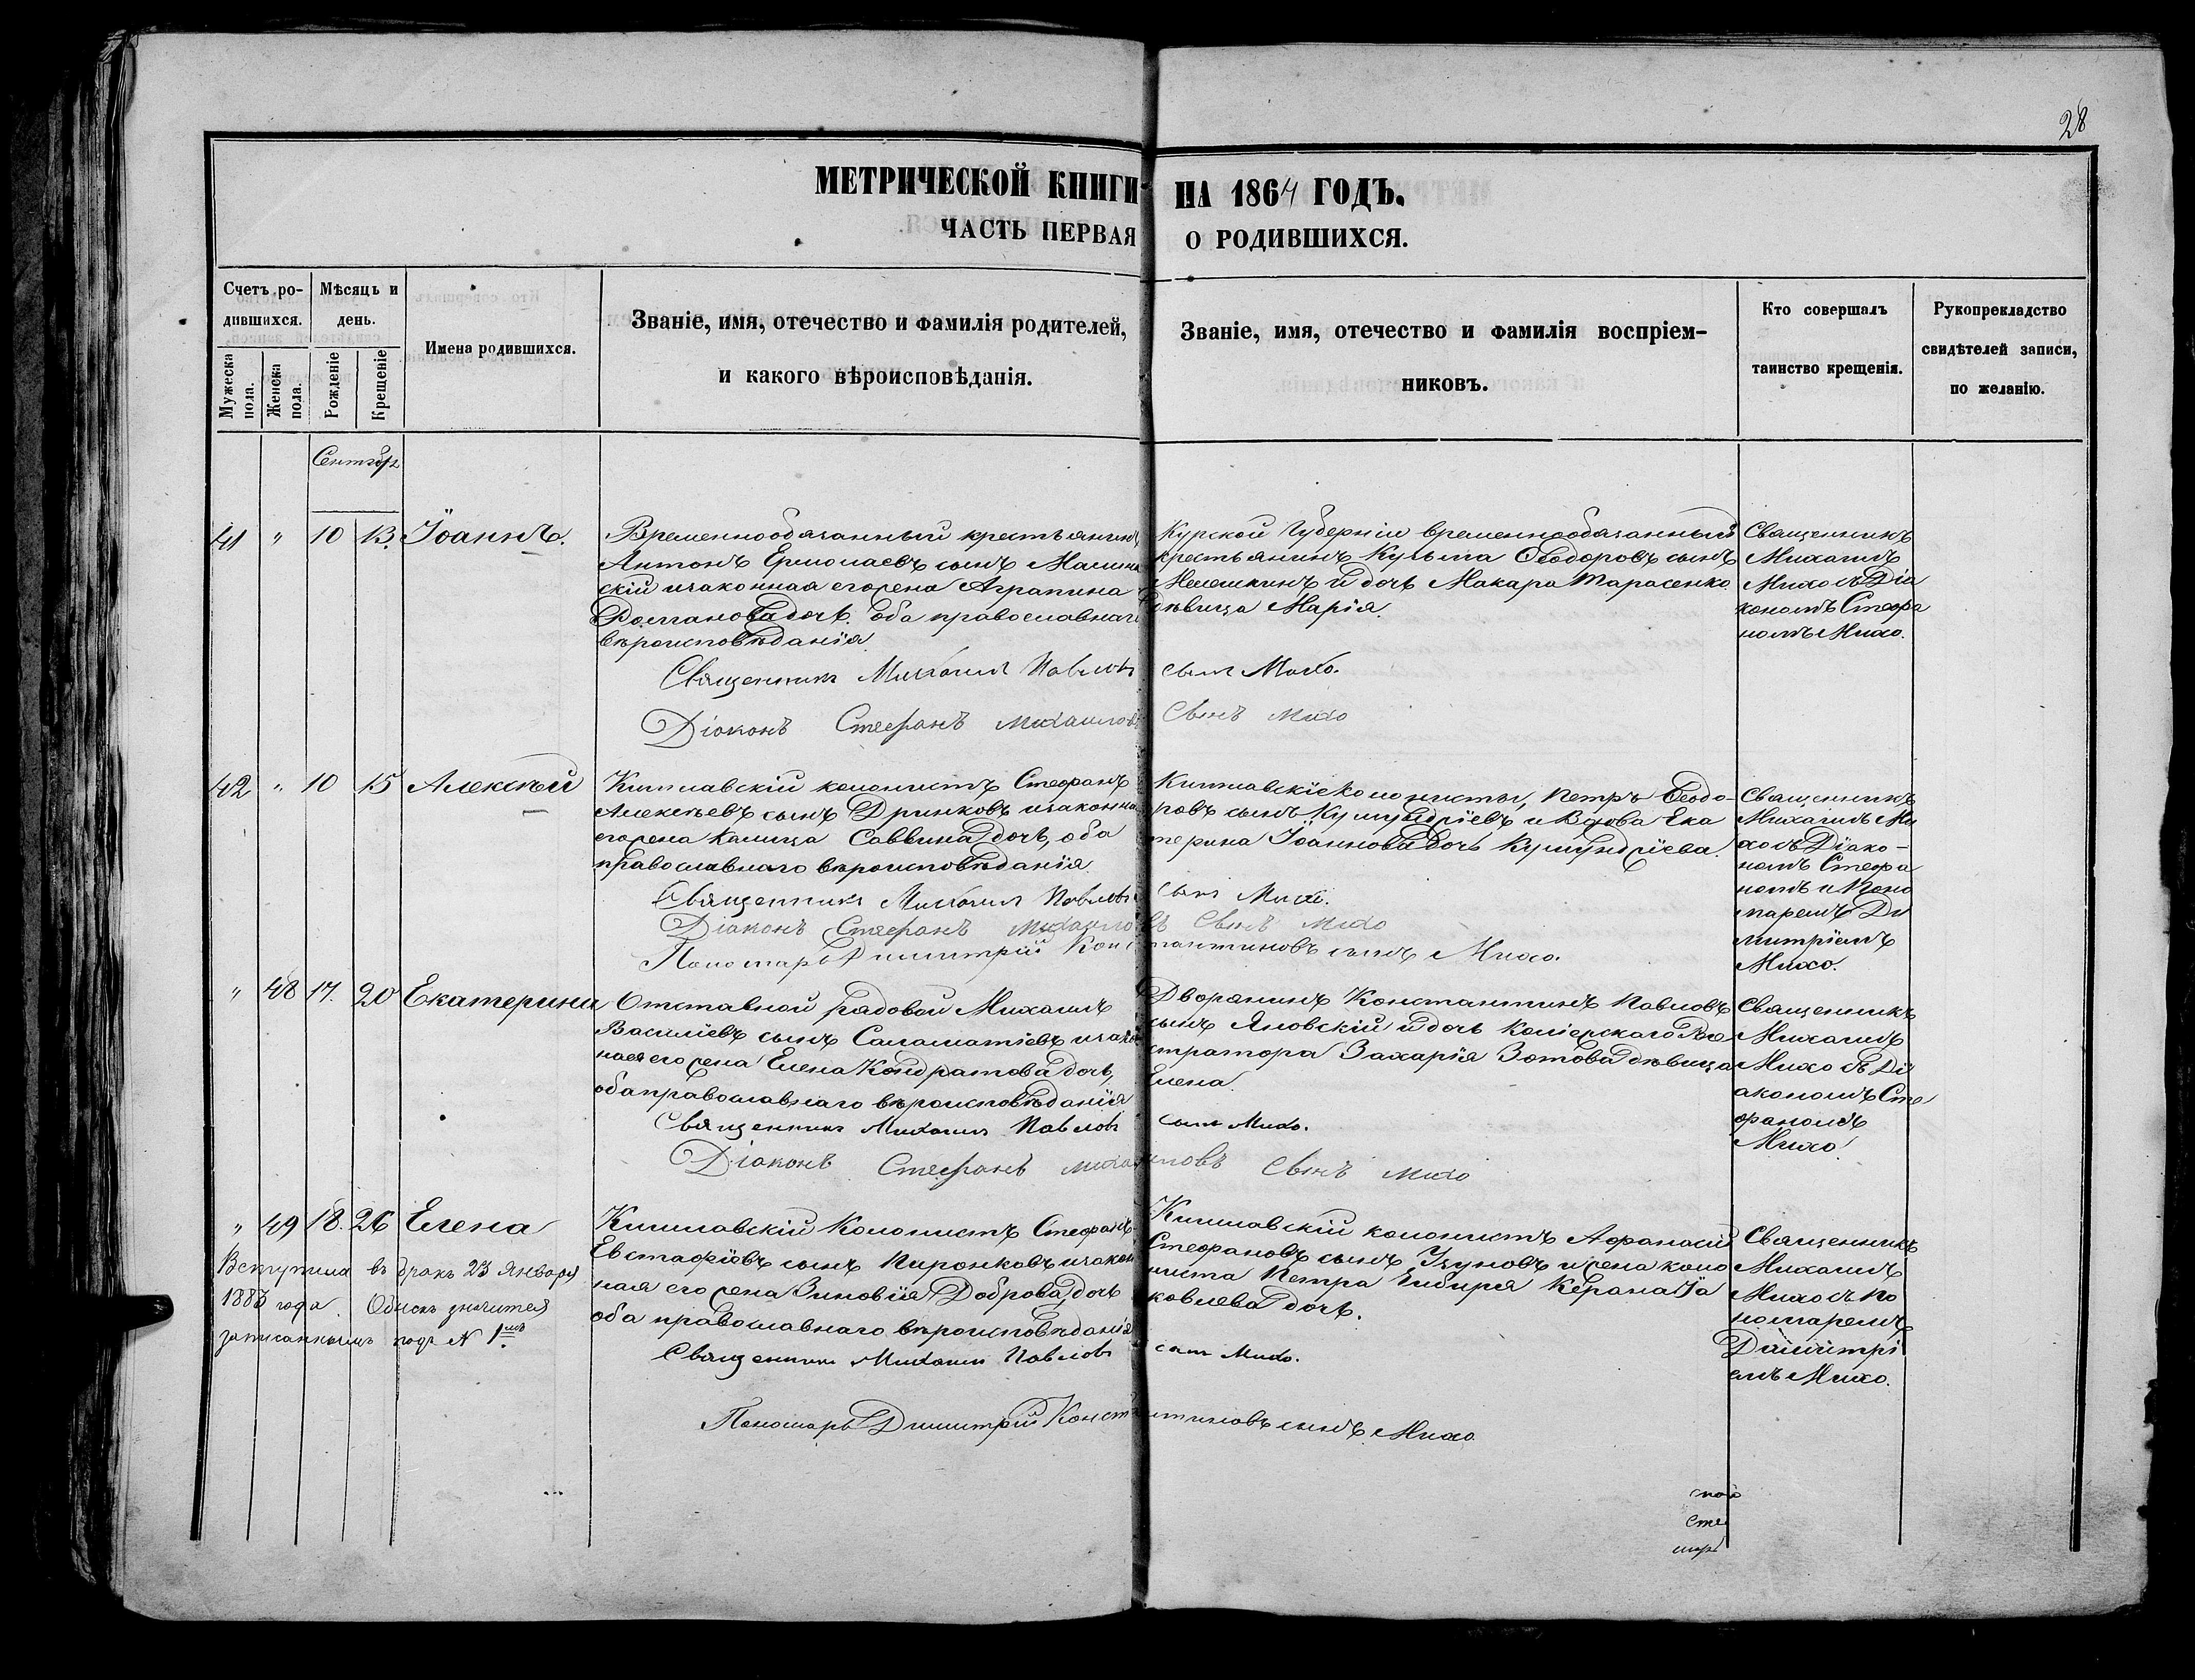 28
МЕТРИЧЕСКОЙ КНИГИ НА 1864 ГОДЪ.
ЧАСТЬ ПЕРВАЯ О РОДИВШИХСЯ.
Счетъ ро-
дившихся.
Мужеска пола.
Женска пола.
Мѣсяцъ и
день.
Рожденіе
Крещеніе
Имена родившихся.
Званіе, имя, отечество и фамилія родителей,
и какого вѣроисповѣданія.
Званіе, имя, отечество и фамилія воспріем-
никовъ.
Кто совершалъ
таинство крещенія.
Рукоприкладство
свидѣтелей записи,
по желанію.
41 " 10 13. Іоаннъ.
Временнообязанный крестьянинъ
Антонъ Ермолаевъ сынъ
скій и законная его жена Агрипина
Романова дочь. оба православнаго
вѣроисповѣданія.
Курской Губерніи временнообязанный
крестьянинъ Кузьма Ѳеодоровъ сынъ
и дочь Макара Тарасенко
дѣвица Марія.
Священникъ
Михаилъ
Михо съ Діа
кономъ Стефа
номъ Михо.
Священникъ Михаилъ Павловъ сынъ Михо.
Діаконъ Стефанъ Михаиловъ Сынъ Михо
42 " 10 15 Алексѣй
колонистъ Стефанъ
Алексѣевъ сынъ Дринковъ и законная
его жена Калица Саввина дочь, оба
православнаго вѣроисповѣданія.
колонисты, Петръ Ѳеодо-
ровъ сынъ и Вдова Ека
терина Іоаннова дочь
Священникъ
Михаилъ Ми
хо съ Діако-
номъ Стефа
номъ и Поно
маремъ Ди
митріемъ
Михо.
Священникъ Михаилъ Павловъ сынъ Михо.
Діаконъ Стефанъ Михаиловъ Сынъ Михо
Пономарь Димитрій Константиновъ сынъ Михо.
" 48 17. 20 Екатерина
Отставной рядовой Михаилъ
Василіевъ сынъ Саламатіевъ и закон
ная его жена Елена Кондратова дочь,
оба православнаго вѣроисповѣданія
Дворянинъ Константинъ Павловъ
сынъ Яновскій и дочь
стратора Захарія Зотова дѣвица
Елена.
Священникъ
Михаилъ
Михо съ Ді
акономъ Сте
фаномъ
Михо.
Священникъ Михаилъ Павловъ сынъ Михо.
Діаконъ Стефанъ Михаиловъ Сынъ Михо
" 49 18. 26 Елена
Колонистъ Стефанъ
Евстафіевъ сынъ Пиронковъ и закон
ная его жена Зиновія Доброва дочь
оба православнаго вѣроисповѣданія
колонистъ Афанасій
Стефановъ сынъ Узуновъ и жена коло
ниста Петра Керана Іа
ковлева дочь.
Священникъ
Михаилъ
Михо съ По
номаремъ
Димитрі
емъ Михо.
Вступила въ бракъ 23 Января
1883 года. Обыскъ значится
записаннымъ подъ N 1мъ.
Священникъ Михаилъ Павловъ сынъ Михо.
Пономарь Димитрій Константиновъ сынъ Михо.